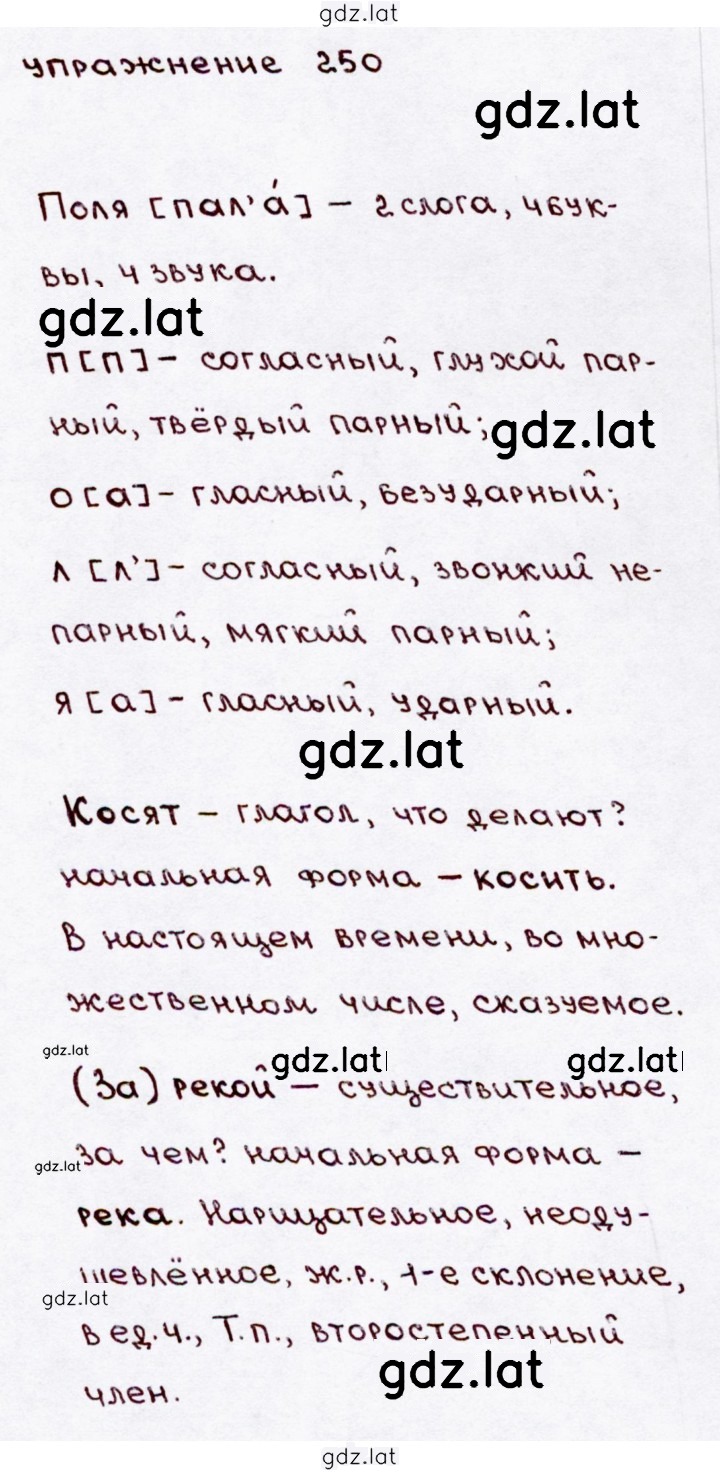 gdz.lat
упражнение 250
gdz.lat
Поля [пал’á] – 2 слога, 4 бук-
вы, 4 звука.
gdz.lat
п [п] – согласный, глухой пар-
ный, твёрдый парный;
gdz.lat
о [а] – гласный, безударный;
л [л’] – согласный, звонкий не-
парный, мягкий парный;
я [а] – гласный, ударный.
gdz.lat
Косят – глагол, что делают?
начальная форма – косить.
В настоящем времени, во мно-
жественном числе, сказуемое.
gdz.lat
gdz.lat
gdz.lat
(За) рекой – существительное,
за чем? начальная форма –
gdz.lat
река. Нарицательное, неоду-
шевлённое, ж.р., 1-е склонение,
gdz.lat
в ед.ч., Т.п., второстепенный
gdz.lat
член.
gdz.lat